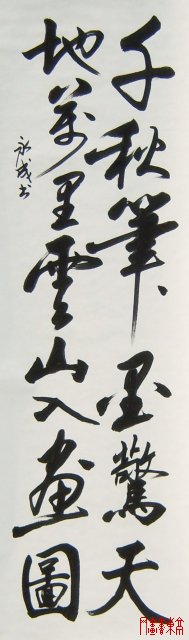 千秋筆墨驚天
地萬里雲山入畫圖
永成书